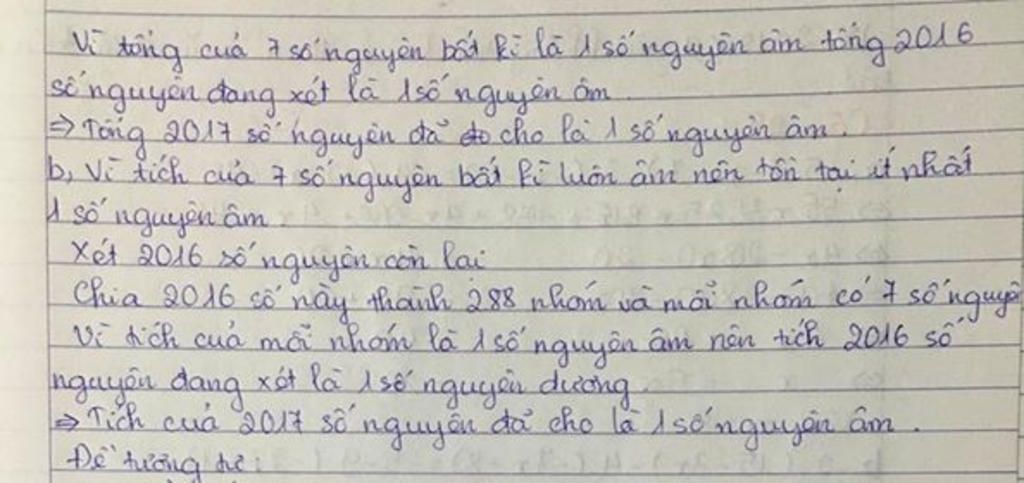 Vì tổng của 7 số nguyên bất kì là 1 số nguyên âm tổng 2016
số nguyên đang xét là 1 số nguyên âm
⇒ Tổng 2017 số nguyên đã cho là 1 số nguyên âm.
b, Vì tích của 7 số nguyên bất kì luôn âm nên tồn tại ít nhất
1 số nguyên âm.
Xét 2016 số nguyên còn lại
Chia 2016 số này thành 288 nhóm và mỗi nhóm có 7 số nguyên
Vì tích của mỗi nhóm là 1 số nguyên âm nên tích 2016 số
nguyên đang xét là 1 số nguyên dương
⇒ Tích của 2017 số nguyên đã cho là 1 số nguyên âm.
Đề tương tự: